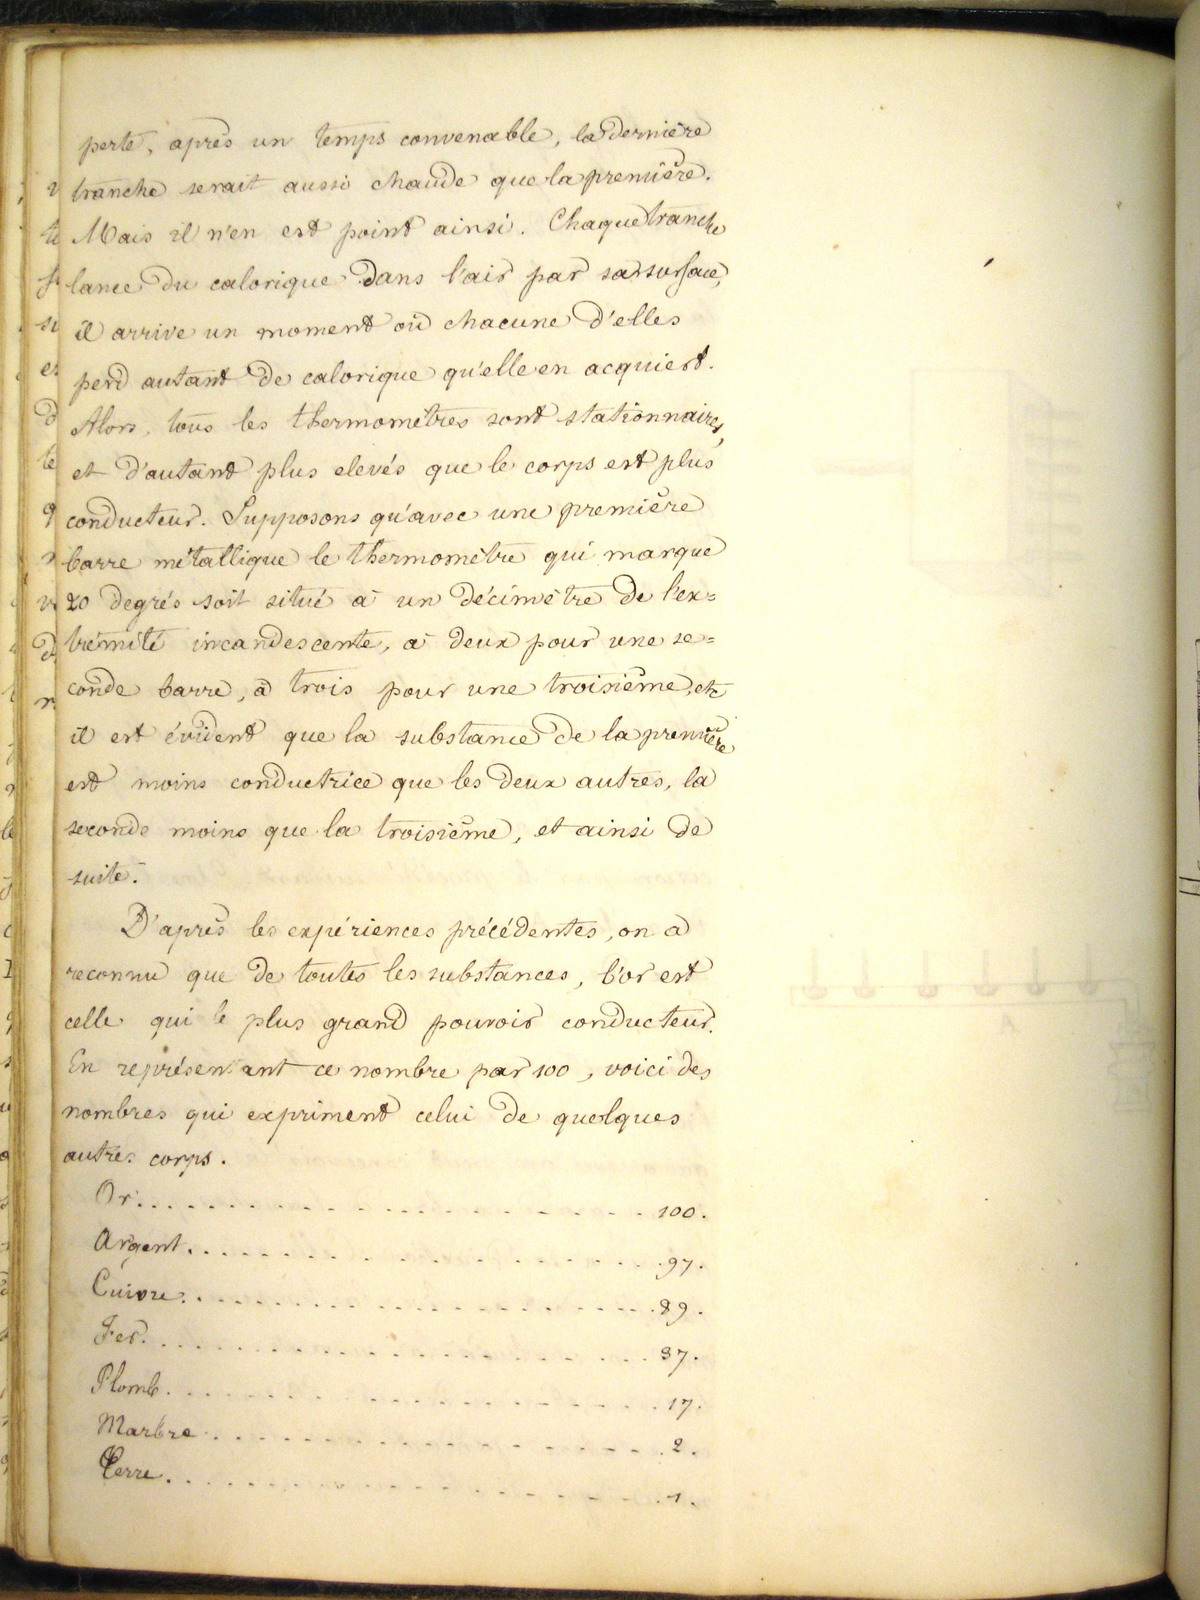 perte, après un temps convenable, la dernière
tranche serait aussi chaude que la première.
Mais il n'en est point ainsi. Chaque tranche
lance du calorique dans l'air par sa surface,
il arrive un moment où chacune d'elles
perd autant de calorique qu'elle en acquiert.
Alors, tous les thermomètres sont stationnaires,
et d'autant plus elevés que le corps est plus
conducteur. Supposons qu'avec une première
barre métallique le thermomètre qui marque
20 degrés soit situé à un décimètre de l'ex=
trémité incandescente, à deux pour une se=
conde barre, à trois pour une troisième, etc
il est évident que la substance de la première
est moins conductrice que les deux autres, la
seconde moins que la troisième, et ainsi de
suite.
D'après les expériences précédentes, on a
reconnu que de toutes les substances, l'or est
celle qui le plus grand pouvoir conducteur.
En représentant ce nombre par 100, voici des
nombres qui expriment celui de quelques
autres corps.
Or. . . . . . . . . . . . . . . . . . 100.
Argent. . . . . . . . . . . . . . . . 97.
Cuivre. . . . . . . . . . . . . . . . 89.
Fer. . . . . . . . . . . . . . . . . . 37.
Plomb. . . . . . . . . . . . . . . . . 17.
Marbre . . . . . . . . . . . . . . . . 2.
Terre. . . . . . . . . . . . . . . . . 1.